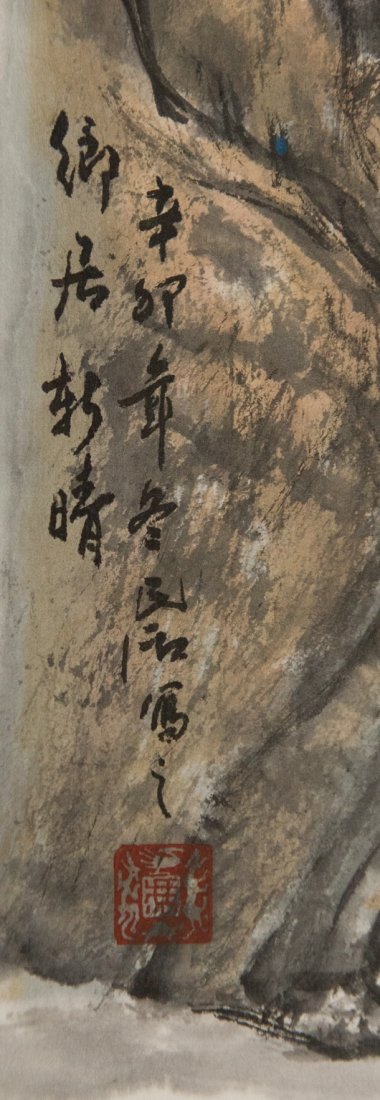 鄉居新晴
辛卯年冬民寫之